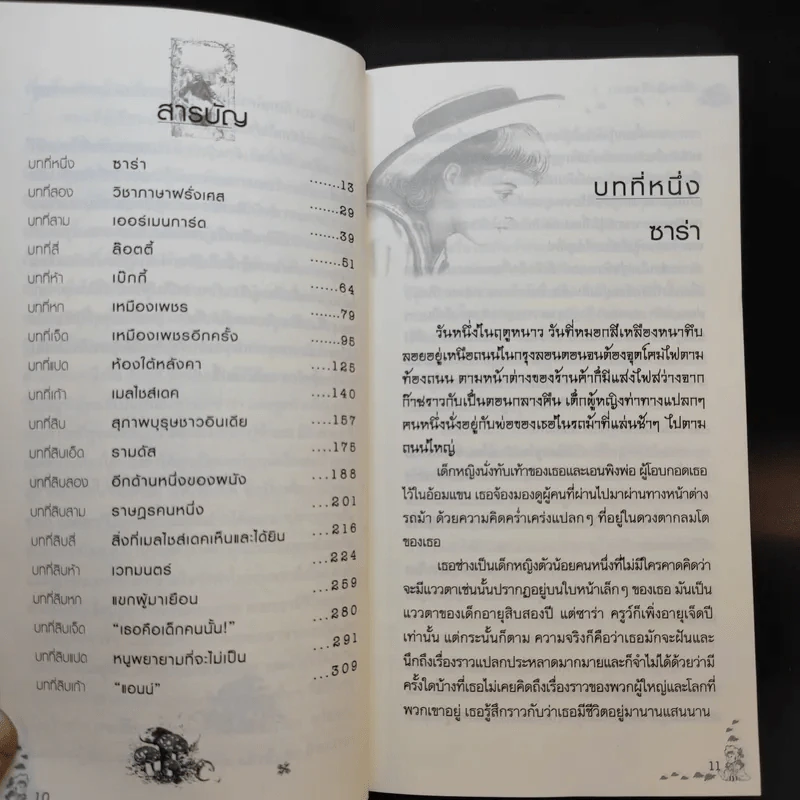 สารบัญ
บทที่หนึ่ง ซาร่า .......13
บทที่สอง วิชาภาษาฝรั่งเศส .......29
บทที่สาม เออร์เมนการ์ด .......39
บทที่สี่ ล๊อตตี้ .......51
บทที่ห้า เบ๊กกี้ .......64
บทที่หก เหมืองเพชร .......79
บทที่เจ็ด เหมืองเพชรอีกครั้ง .......95
บทที่แปด ห้องใต้หลังคา ......125
บทที่เก้า เมลไชส์เดค ......140
บทที่สิบ สุภาพบุรุษชาวอินเดีย ......157
บทที่สิบเอ็ด รามดัส ......175
บทที่สิบสอง อีกด้านหนึ่งของผนัง ...188
บทที่สิบสาม ราษฎรคนหนึ่ง ...201
บทที่สิบสี่ สิ่งที่เมลไชส์เดคเห็นและได้ยิน ...216
บทที่สิบห้า เวทมนตร์ ...224
บทที่สิบหก แขกผู้มาเยือน ...259
บทที่สิบเจ็ด "เธอคือเด็กคนนั้น!" ...280
บทที่สิบแปด หนูพยายามที่จะไม่เป็น ...291
บทที่สิบเก้า "แอนน์" ...309
10
บทที่หนึ่ง
ซาร่า
วันหนึ่งในฤดูหนาว วันที่หมอกสีเหลืองหนาทึบ
ลอยอยู่เหนือถนนในกรุงลอนดอนจนต้องจุดโคมไฟตาม
ท้องถนน ตามหน้าต่างของร้านค้าก็มีแสงไฟสว่างจาก
ก๊าซราวกับเป็นตอนกลางคืน เด็กผู้หญิงท่าทางแปลกๆ
คนหนึ่งนั่งอยู่กับพ่อของเธอในรถม้าที่แล่นช้าๆ ไปตาม
ถนนใหญ่
เด็กหญิงนั่งทับเท้าของเธอและเอนพิงพ่อ ผู้โอบกอดเธอ
ไว้ในอ้อมแขน เธอจ้องมองดูผู้คนที่ผ่านไปมาผ่านทางหน้าต่าง
รถม้า ด้วยความคิดคร่ำเคร่งแปลกๆ ที่อยู่ในดวงตากลมโต
ของเธอ
เธอช่างเป็นเด็กหญิงตัวน้อยคนหนึ่งที่ไม่มีใครคาดคิดว่า
จะมีแววตาเช่นนั้นปรากฏอยู่บนใบหน้าเล็กๆ ของเธอ มันเป็น
แววตาของเด็กอายุสิบสองปี แต่ซาร่า ครูว์ก็เพิ่งอายุเจ็ดปี
เท่านั้น แต่กระนั้นก็ตาม ความจริงก็คือว่าเธอมักจะฝันและ
นึกถึงเรื่องราวแปลกประหลาดมากมายและก็จำไม่ได้ด้วยว่ามี
ครั้งใดบ้างที่เธอไม่เคยคิดถึงเรื่องราวของพวกผู้ใหญ่และโลกที่
พวกเขาอยู่ เธอรู้สึกราวกับว่าเธอมีชีวิตอยู่มานานแสนนาน
11